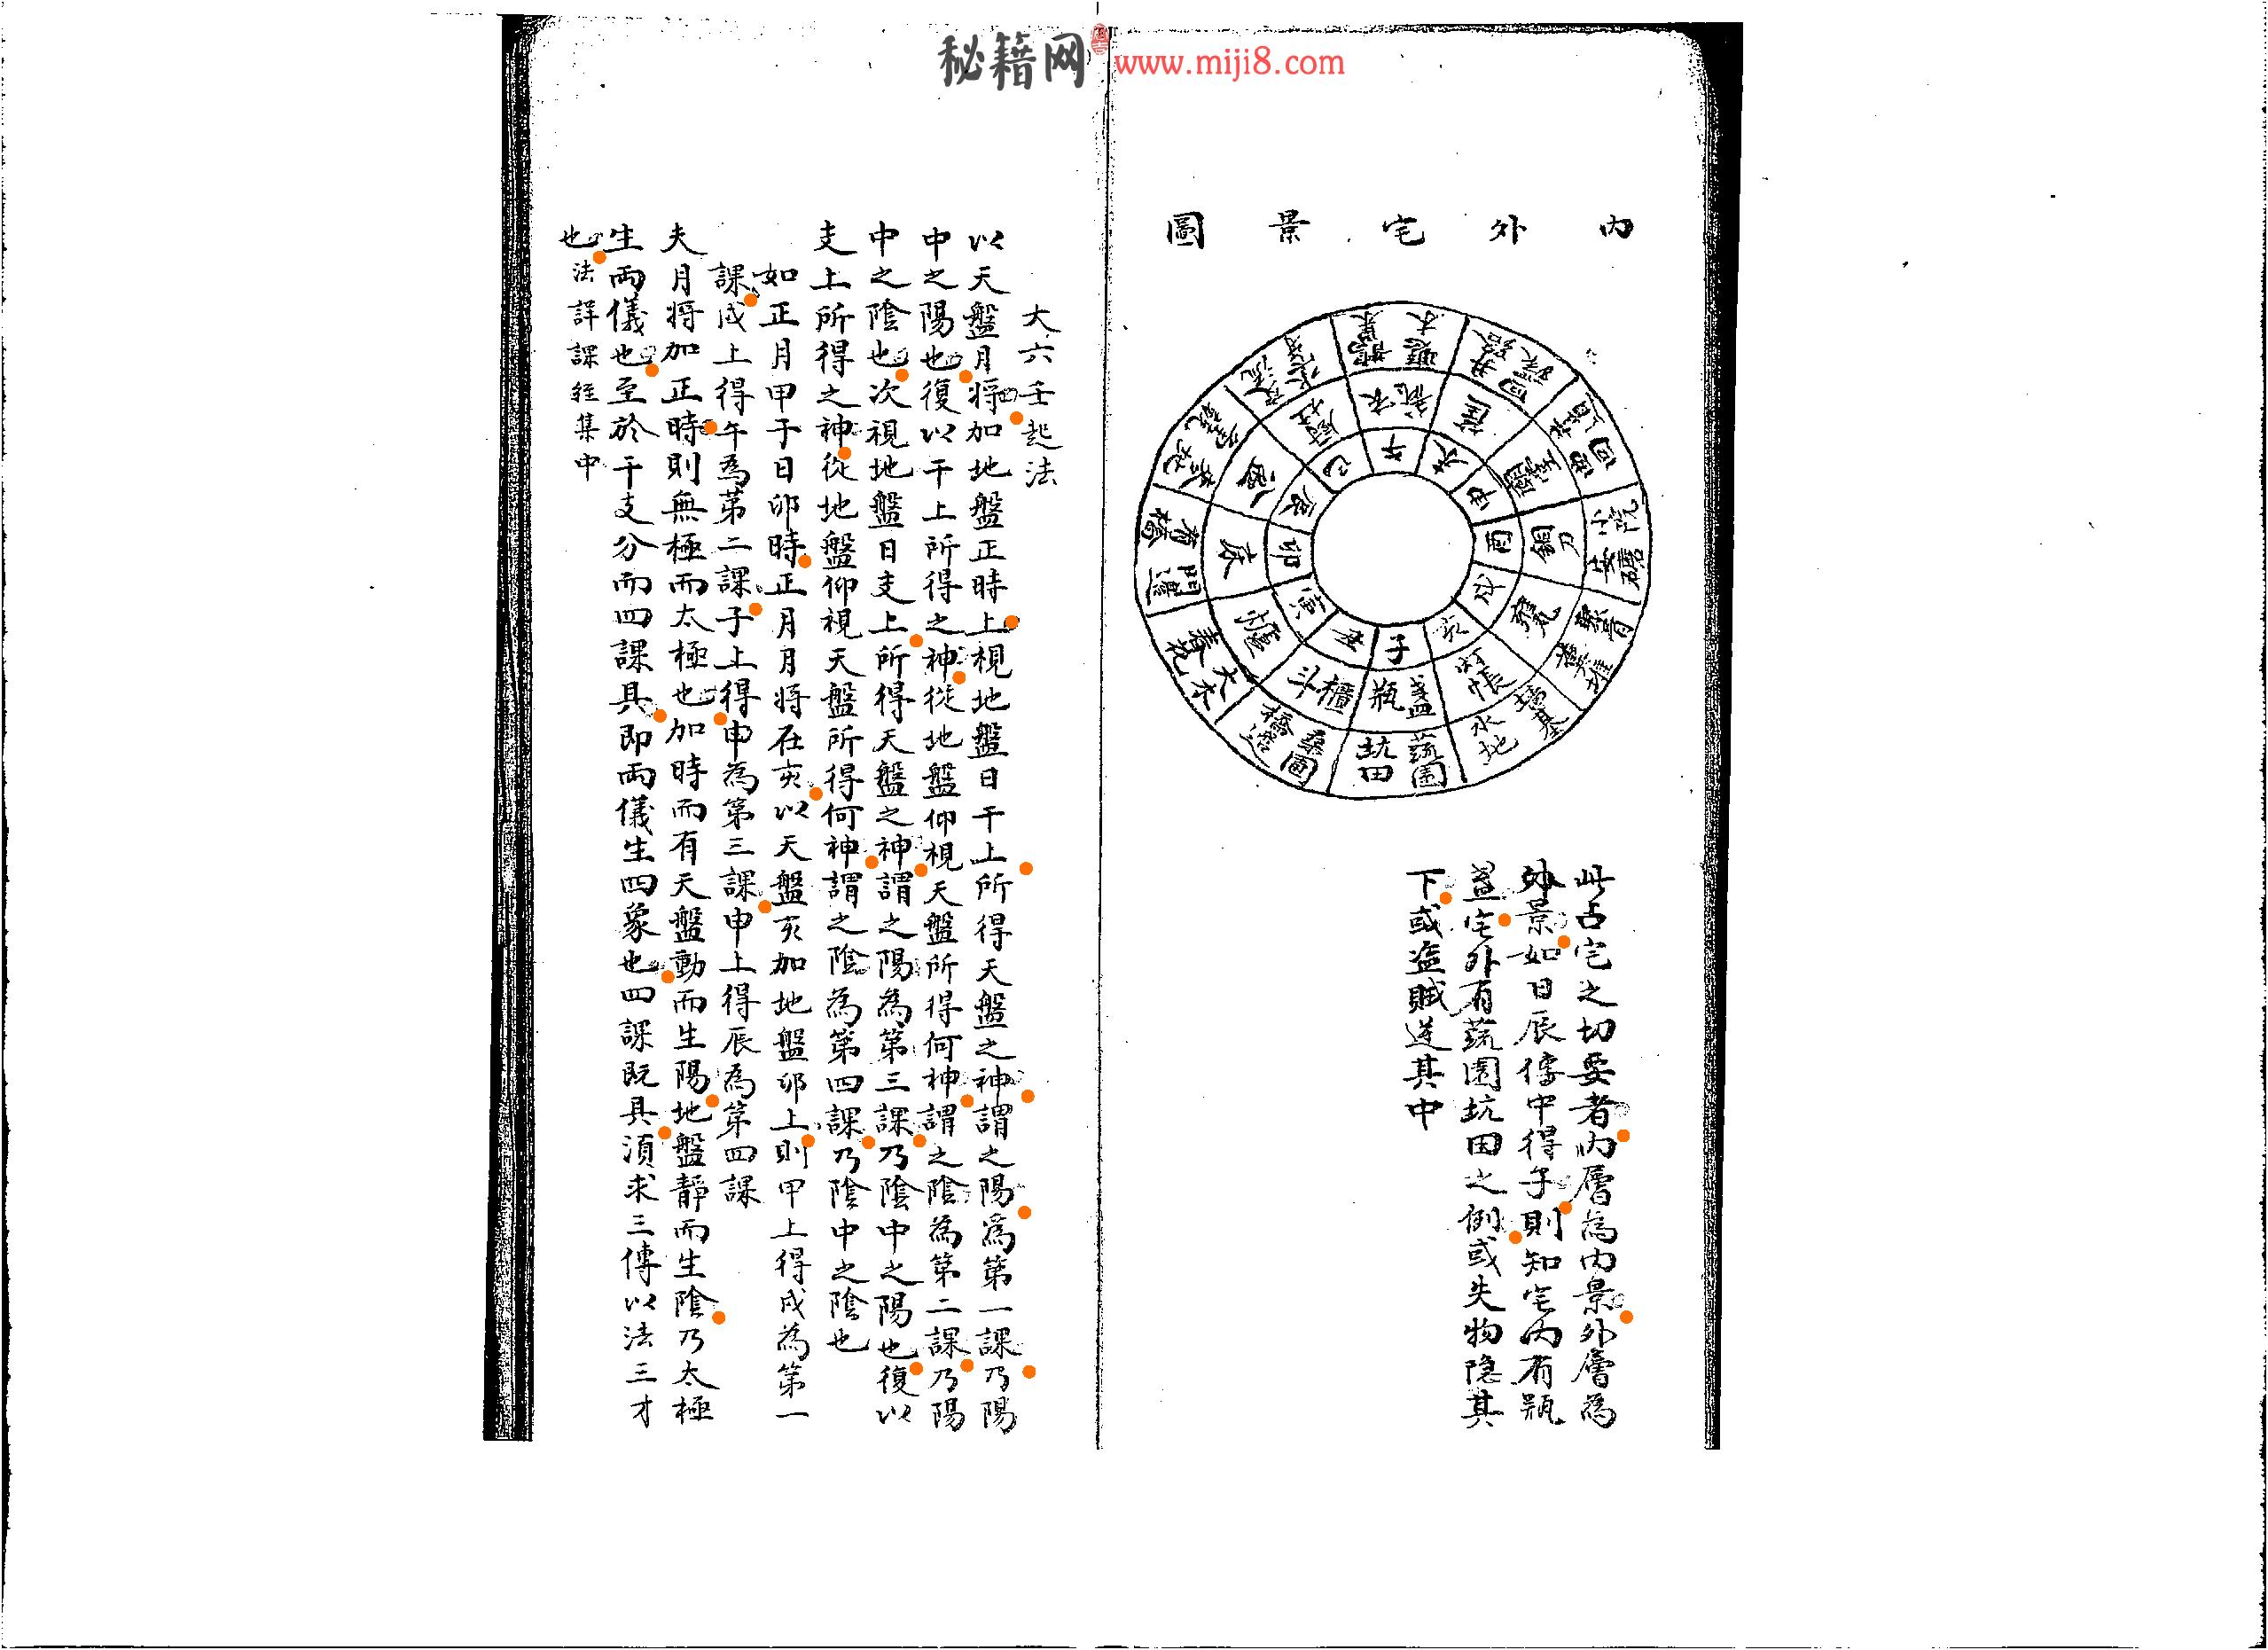 秘籍网 www.miji8.com
內外宅景圖
午
未
申
酉
戌
亥
子
丑
寅
卯
辰
巳
盞瓶
櫃斗
蔬園坑田
墻基水地
此占宅之切要者內層為內景外層為
外景如日辰傳中得子則知宅內有瓶
盞宅外有蔬園坑田之例或失物隐其
下或盗賊逆其中
大六壬起法
以天盤月将加地盤正時上視地盤日干上所得天盤之神謂之陽為第一課乃陽
中之陽也復以干上所得之神從地盤仰視天盤所得何神謂之陰為第二課乃陽
中之陰也次視地盤日支上所得天盤之神謂之陽為第三課乃陰中之陽也復以
支上所得之神從地盤仰視天盤所得何神謂之陰為第四課乃陰中之陰也
如正月甲子日卯時正月月将在亥以天盤亥加地盤卯上則甲上得戌為第一
課戌上得午為第二課子上得申為第三課申上得辰為第四課
夫月将加正時則無極而太極也加時而有天盤動而生陽地盤靜而生陰乃太極
生兩儀也至於干支分而四課具即兩儀生四象也四課既具須求三傳以法三才
也法詳課經集中